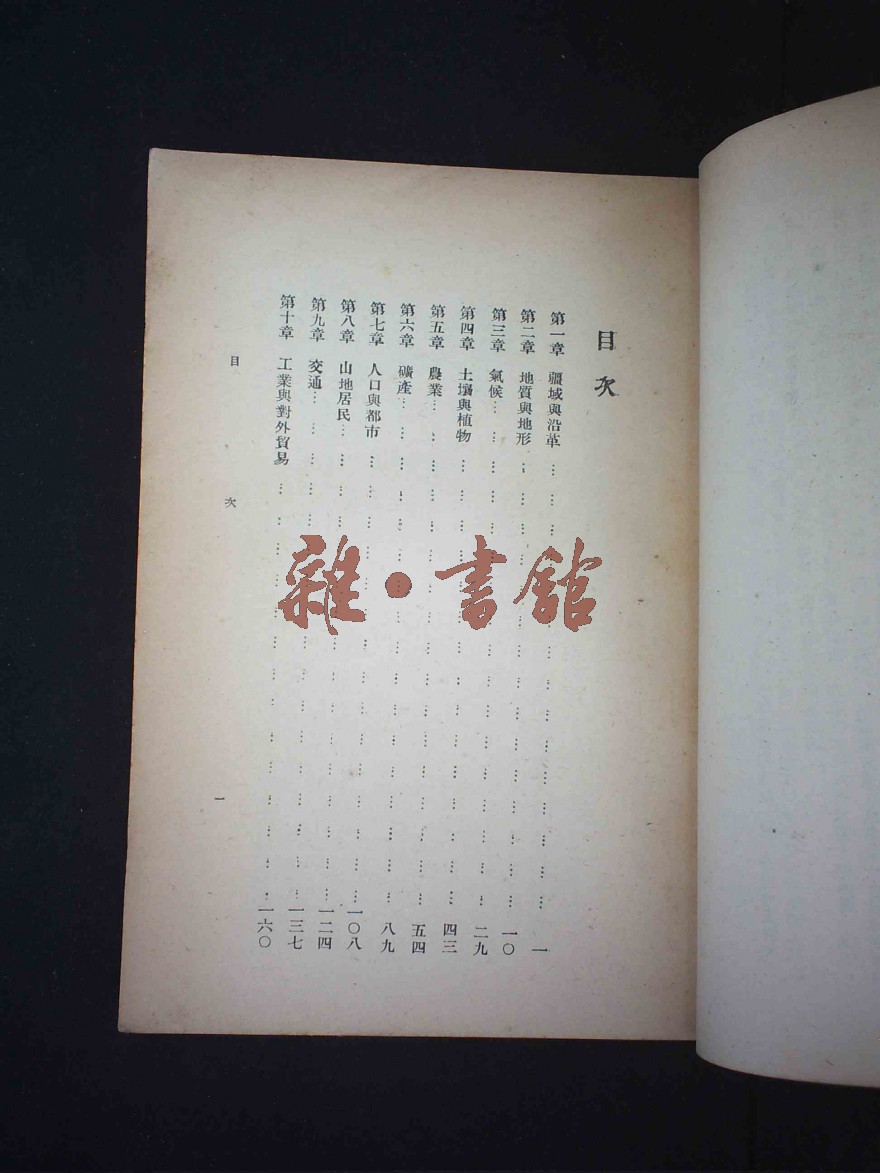 目次
第一章 疆域與沿革 …… 一
第二章 地質與地形 …… 一〇
第三章 氣候 …… 二九
第四章 土壤與植物 …… 四三
第五章 農業 …… 五四
第六章 礦產 …… 八九
第七章 人口與都市 …… 一〇八
第八章 山地居民 …… 一二四
第九章 交通 …… 一三七
第十章 工業與對外貿易 …… 一六〇
目次
一
雜·書館